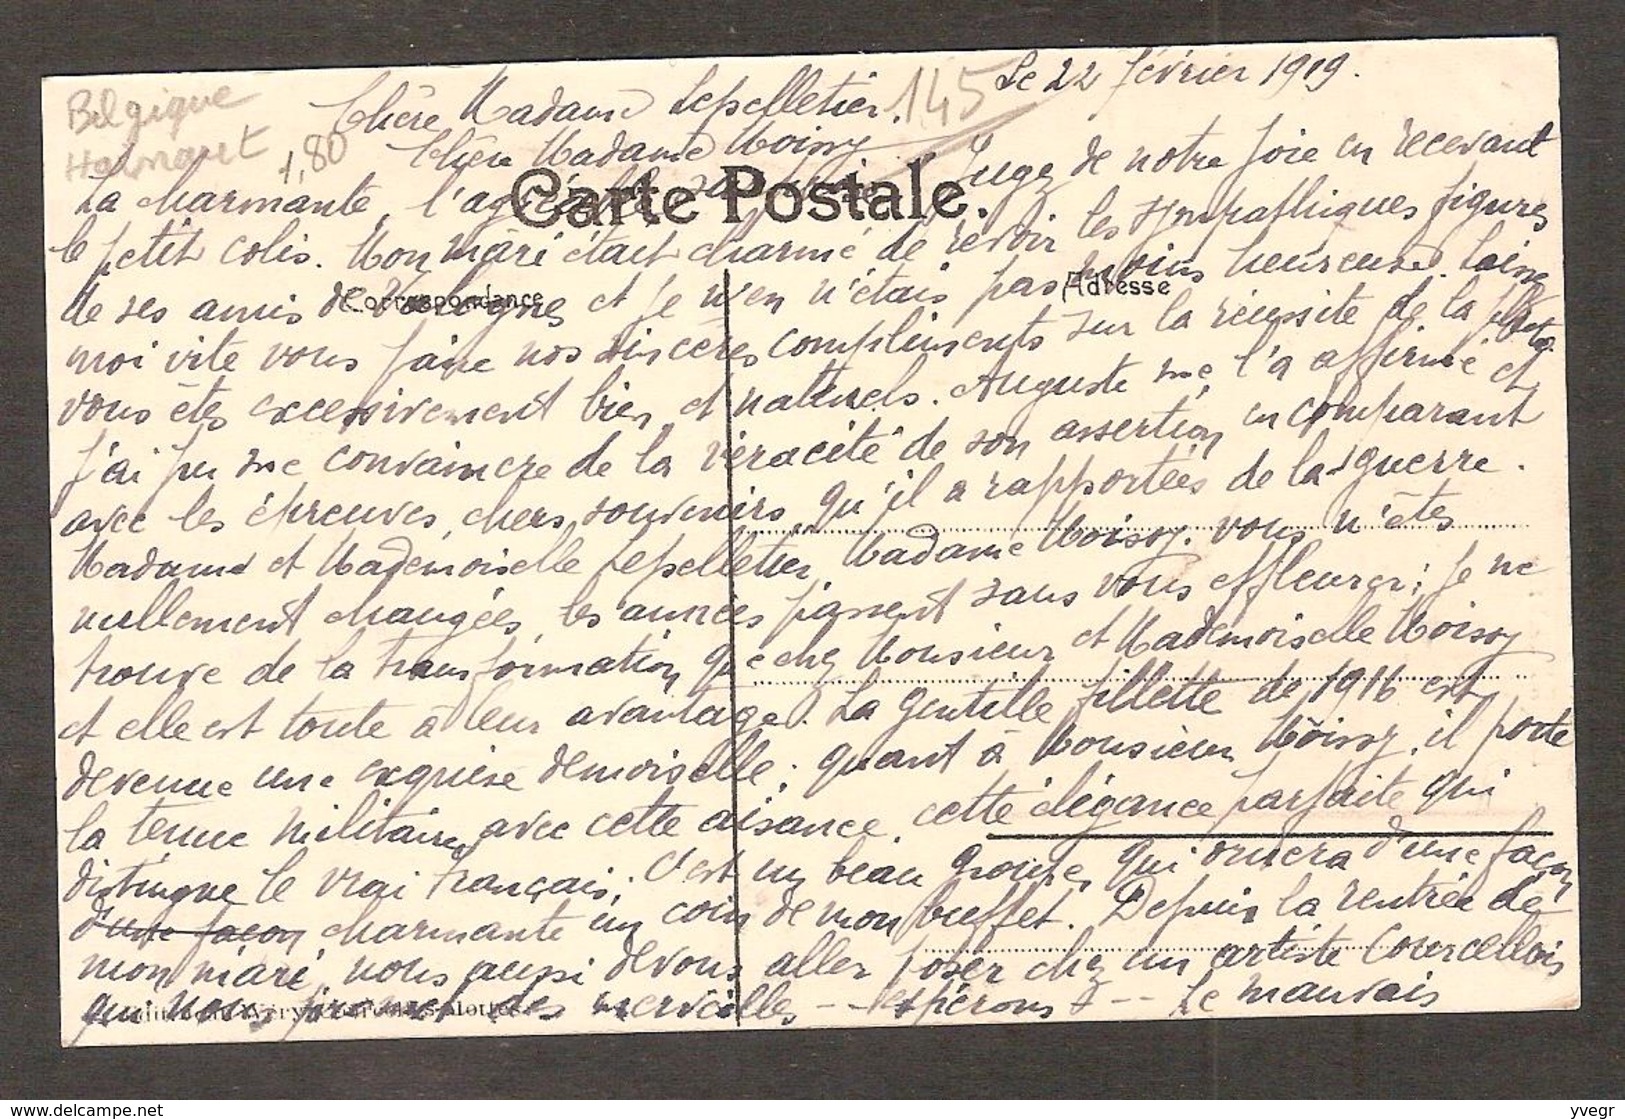 Belgique
Hainaut
1,80
145
Le 22 février 1919.
Chère Madame Lepelletier.
Chère Madame Moissy
Carte Postale.
Correspondance
Adresse
Jugez de notre joie en recevant
La charmante, l'agréable surprise
le petit colis. Mon mari était charmé de revoir les sympathiques figures
de ses amis de Valognes et je n'en n'étais pas moins heureuse. Laissez
moi vite vous faire nos sincères compliments sur la réussite de la photo.
vous êtes excessivement bien et naturels. Auguste me l'a affirmé et
j'ai pu me convaincre de la véracité de son assertion en comparant
avec les épreuves, chers souvenirs, qu'il a rapportées de la guerre.
Madame et Mademoiselle Lepelletier, Madame Moissy. vous n'êtes
nullement changées, les années passent sans vous effleurer; je ne
trouve de la transformation que chez Monsieur et Mademoiselle Moissy
et elle est toute à leur avantage. La gentille fillette de 1916 est
devenue une exquise demoiselle; quant à Monsieur Moissy, il porte
la tenue militaire avec cette aisance, cette élégance parfaite qui
distingue le vrai Français; c'est un beau groupe qui ornera d'une façon
d'une façon charmante un coin de mon buffet. Depuis la rentrée de
mon mari, nous aussi devons aller poser chez un artiste Courcellois
qui nous promet des merveilles -- espérons -- Le mauvais
delcampe.net
yvegr